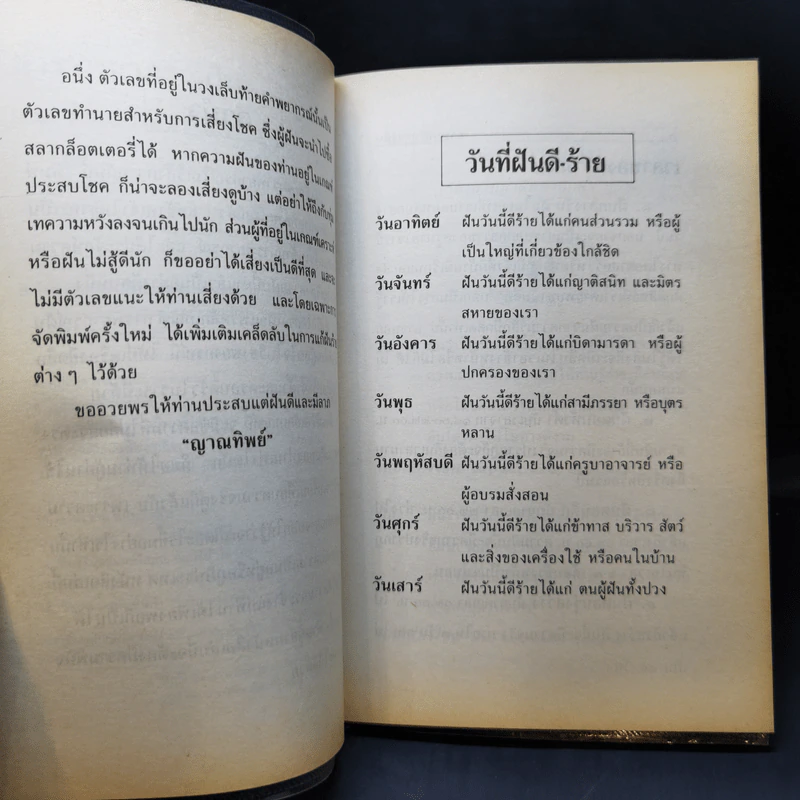 อนึ่ง ตัวเลขที่อยู่ในวงเล็บท้ายคำพยากรณ์นั้นเป็น
ตัวเลขทำนายสำหรับการเสี่ยงโชค ซึ่งผู้ฝันจะนำไปซื้อ
สลากล็อตเตอรี่ได้ หากความฝันของท่านอยู่ในเกณฑ์
ประสบโชค ก็น่าจะลองเสี่ยงดูบ้าง แต่อย่าให้ถึงกับทุ่ม
เทความหวังลงจนเกินไปนัก ส่วนผู้ที่อยู่ในเกณฑ์เคราะห์
หรือฝันไม่สู้ดีนัก ก็ขออย่าได้เสี่ยงเป็นดีที่สุด และจะ
ไม่มีตัวเลขแนะให้ท่านเสี่ยงด้วย และโดยเฉพาะการ
จัดพิมพ์ครั้งใหม่ ได้เพิ่มเติมเคล็ดลับในการแก้ฝันร้าย
ต่าง ๆ ไว้ด้วย
ขออวยพรให้ท่านประสบแต่ฝันดีและมีลาภ
“ญาณทิพย์”
วันที่ฝันดี-ร้าย
วันอาทิตย์ ฝันวันนี้ดีร้ายได้แก่คนส่วนรวม หรือผู้
เป็นใหญ่ที่เกี่ยวข้องใกล้ชิด
วันจันทร์ ฝันวันนี้ดีร้ายได้แก่ญาติสนิท และมิตร
สหายของเรา
วันอังคาร ฝันวันนี้ดีร้ายได้แก่บิดามารดา หรือผู้
ปกครองของเรา
วันพุธ ฝันวันนี้ดีร้ายได้แก่สามีภรรยา หรือบุตร
หลาน
วันพฤหัสบดี ฝันวันนี้ดีร้ายได้แก่ครูบาอาจารย์ หรือ
ผู้อบรมสั่งสอน
วันศุกร์ ฝันวันนี้ดีร้ายได้แก่ข้าทาส บริวาร สัตว์
และสิ่งของเครื่องใช้ หรือคนในบ้าน
วันเสาร์ ฝันวันนี้ดีร้ายได้แก่ ตนผู้ฝันทั้งปวง